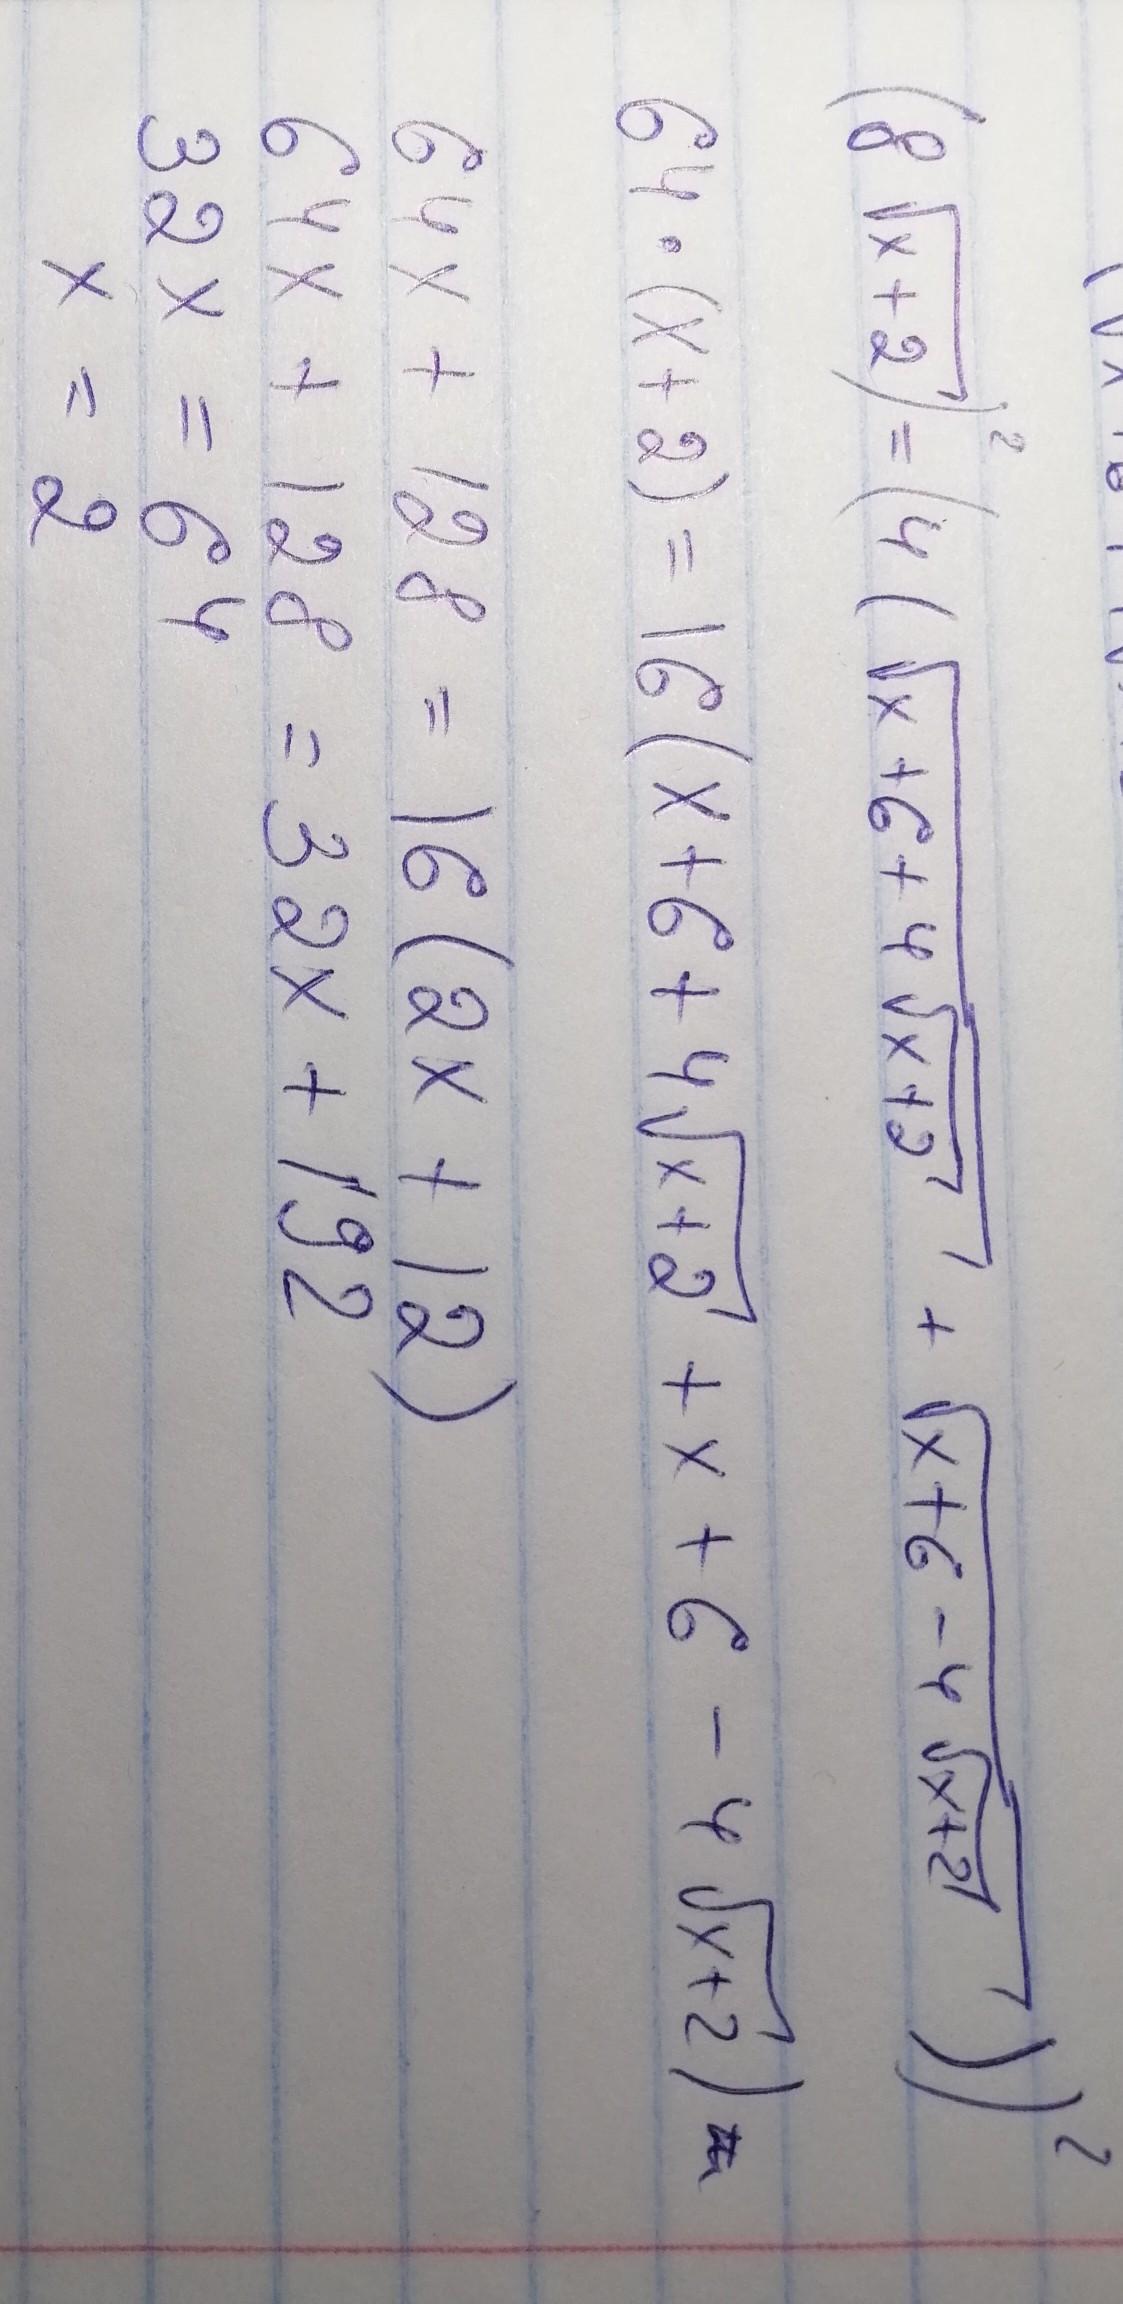 (8√(x+2))² = (4(√(x+6+4√(x+2)) + √(x+6-4√(x+2))))²
64·(x+2) = 16(x+6+4√(x+2) + x+6-4√(x+2))
64x + 128 = 16(2x+12)
64x + 128 = 32x + 192
32x = 64
x = 2